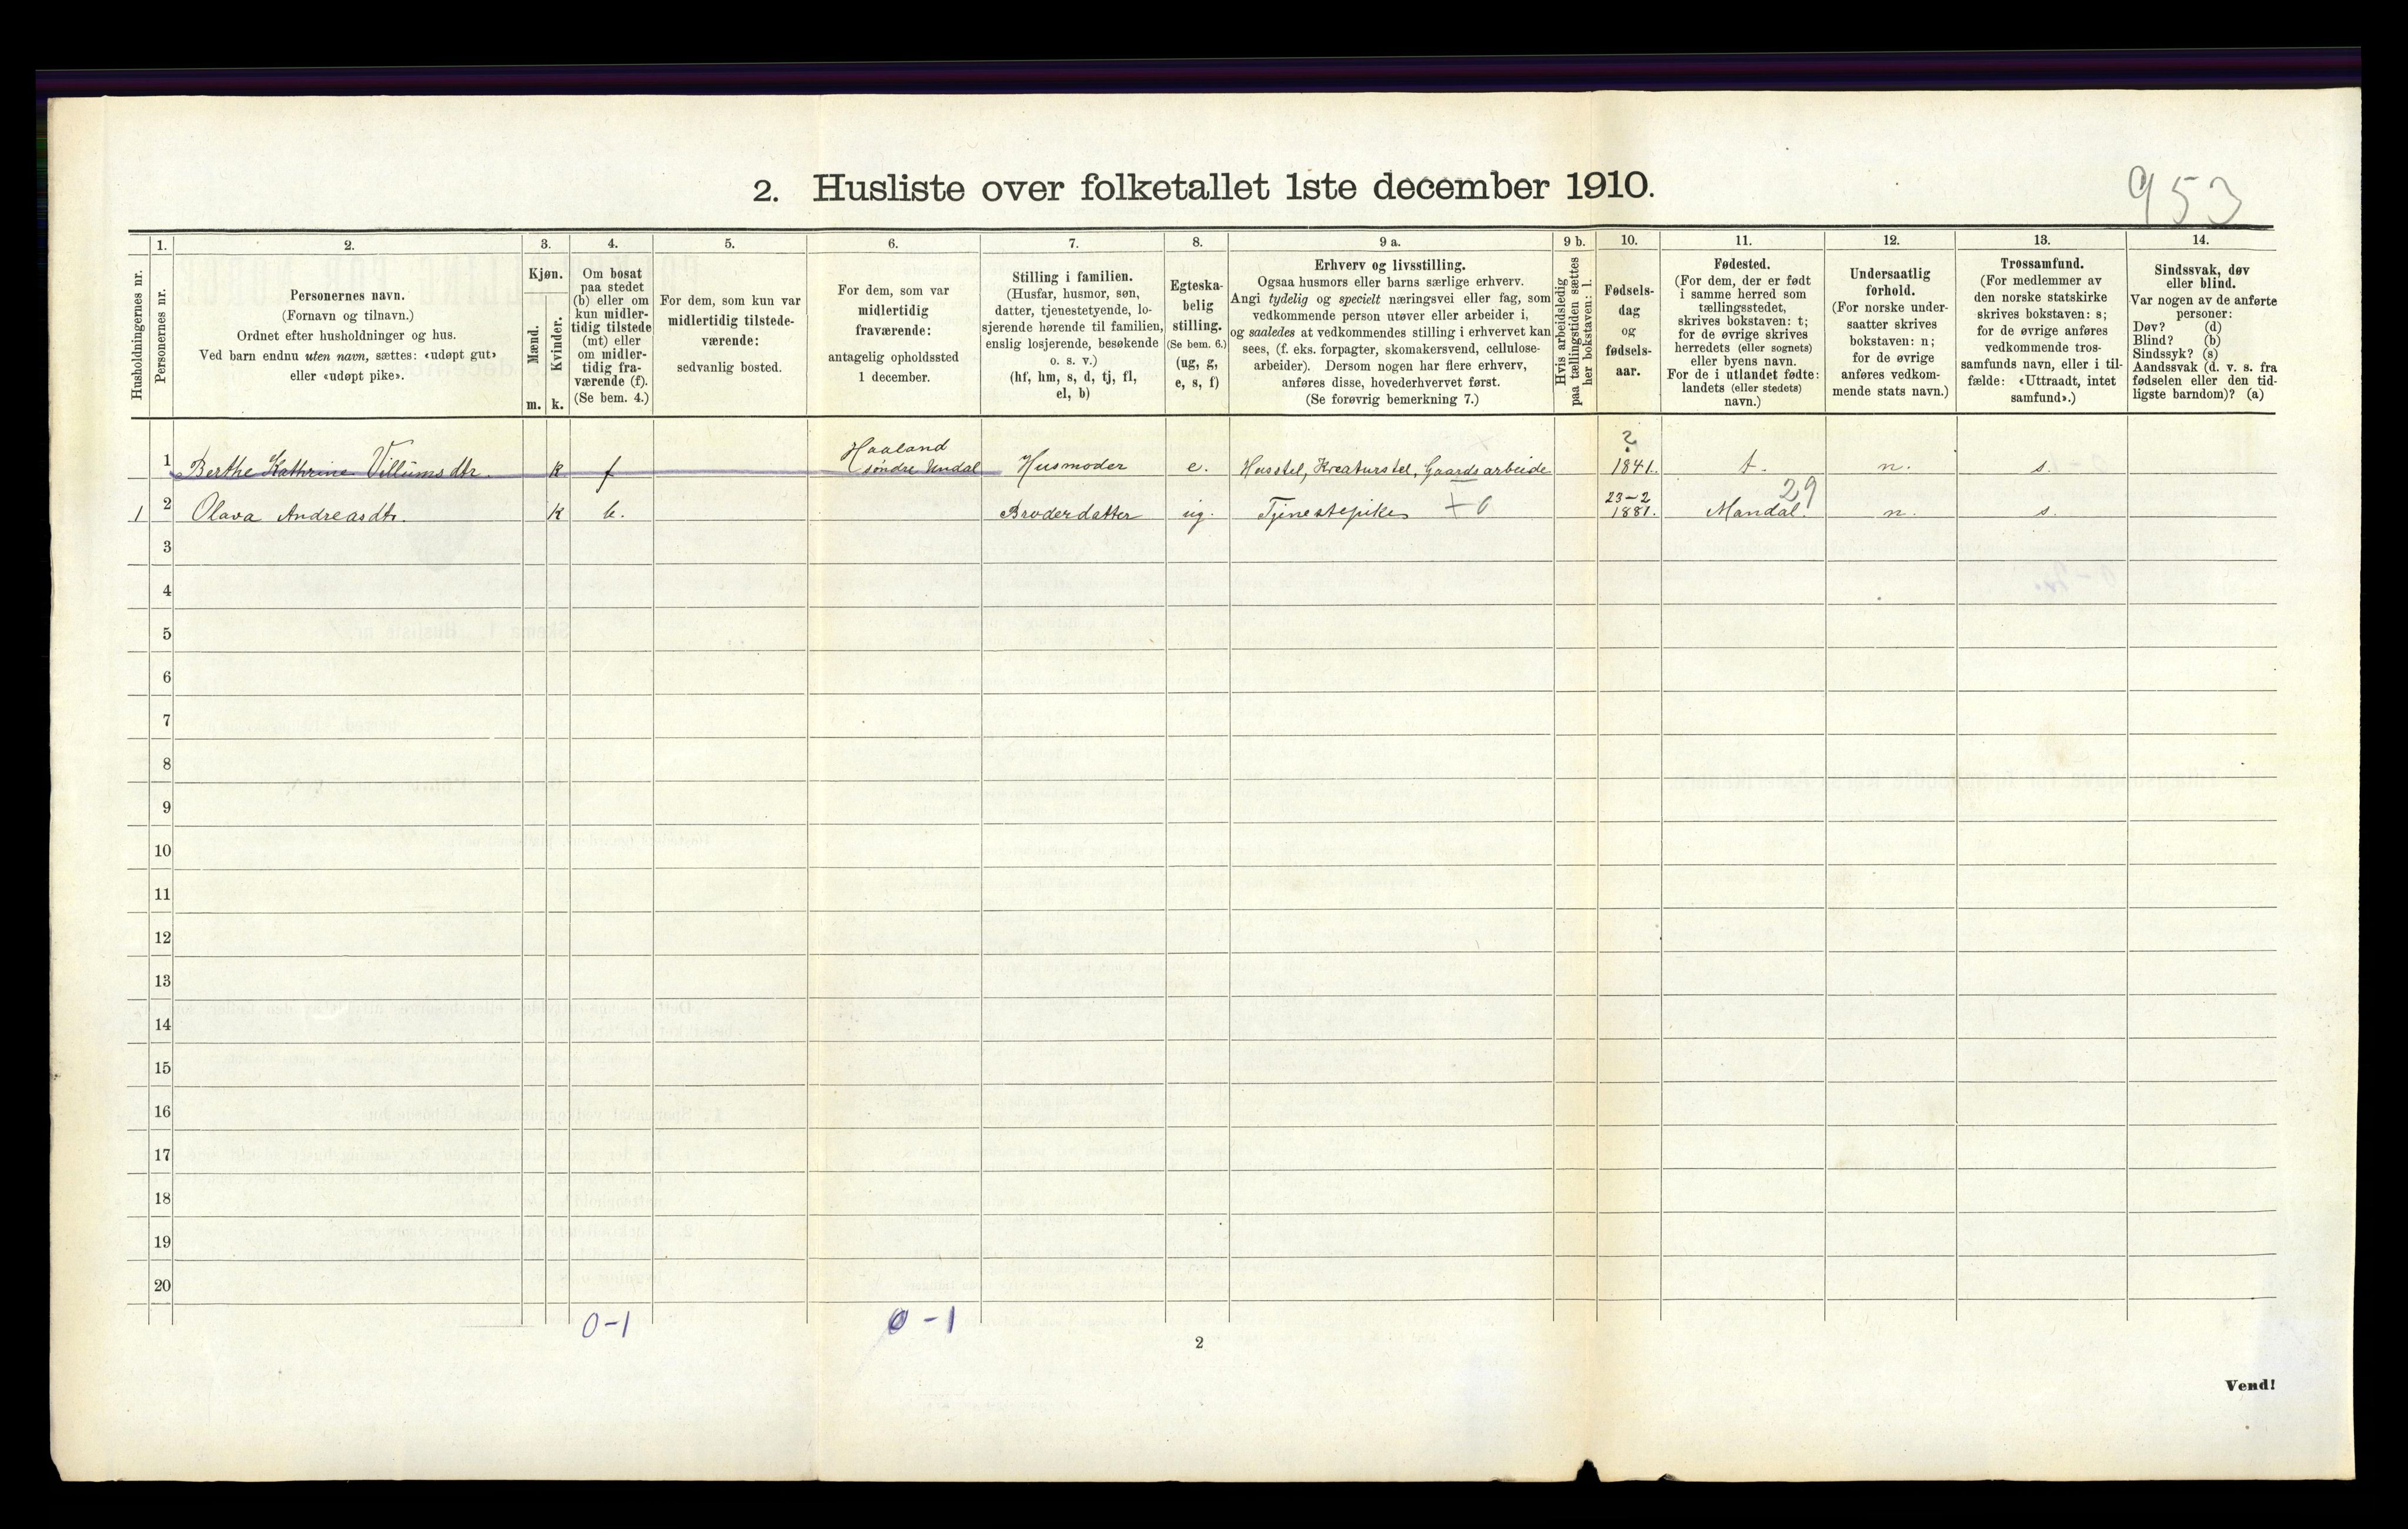 953
2. Husliste over folketallet 1ste december 1910.
Husholdningernes nr.
1.
Personernes nr.
2.
Personernes navn.
(Fornavn og tilnavn.)
Ordnet efter husholdninger og hus.
Ved barn endnu uten navn, sættes: «udøpt gut»
eller «udøpt pike».
3.
Kjøn.
Mænd.
Kvinder.
m. k.
4.
Om bosat
paa stedet
(b) eller om
kun midler-
tidig tilstede
(mt) eller
om midler-
tidig fra-
værende (f).
(Se bem. 4.)
5.
For dem, som kun var
midlertidig tilstede-
værende:
sedvanlig bosted.
6.
For dem, som var
midlertidig
fraværende:
antagelig opholdssted
1 december.
7.
Stilling i familien.
(Husfar, husmor, søn,
datter, tjenestetyende, lo-
sjerende hørende til familien,
enslig losjerende, besøkende
o. s. v.)
(hf, hm, s, d, tj, fl,
el, b)
8.
Egteska-
belig
stilling.
(Se bem. 6.)
(ug, g,
e, s, f)
9 a.
Erhverv og livsstilling.
Ogsaa husmors eller barns særlige erhverv.
Angi tydelig og specielt næringsvei eller fag, som
vedkommende person utøver eller arbeider i,
og saaledes at vedkommendes stilling i erhvervet kan
sees, (f. eks. forpagter, skomakersvend, cellulose-
arbeider). Dersom nogen har flere erhverv,
anføres disse, hovederhvervet først.
(Se forøvrig bemerkning 7.)
9 b.
Hvis arbeidsledig
paa tællingstiden sættes
her bokstaven: l.
10.
Fødsels-
dag
og
fødsels-
aar.
11.
Fødested.
(For dem, der er født
i samme herred som
tællingsstedet,
skrives bokstaven: t;
for de øvrige skrives
herredets (eller sognets)
eller byens navn.
For de i utlandet fødte:
landets (eller stedets)
navn.)
12.
Undersaatlig
forhold.
(For norske under-
saatter skrives
bokstaven: n;
for de øvrige
anføres vedkom-
mende stats navn.)
13.
Trossamfund.
(For medlemmer av
den norske statskirke
skrives bokstaven: s;
for de øvrige anføres
vedkommende tros-
samfunds navn, eller i til-
fælde: «Uttraadt, intet
samfund».)
14.
Sindssvak, døv
eller blind.
Var nogen av de anførte
personer:
Døv? (d)
Blind? (b)
Sindssyk? (s)
Aandssvak (d. v. s. fra
fødselen eller den tid-
ligste barndom)? (a)
1 Berthe Kathrine Villumsdtr. k f Haaland søndre Undal Husmoder e. Husstel, Kreaturstel, Gaardsarbeide ? 1841. t. n. s.
1 2 Olava Andreasdtr. k b. Broderdatter ug. Tjenestepike 23-2 1881. Mandal. 29 n. s.
3
4
5
6
7
8
9
10
11
12
13
14
15
16
17
18
19
20
0-1 0-1
2
Vend!